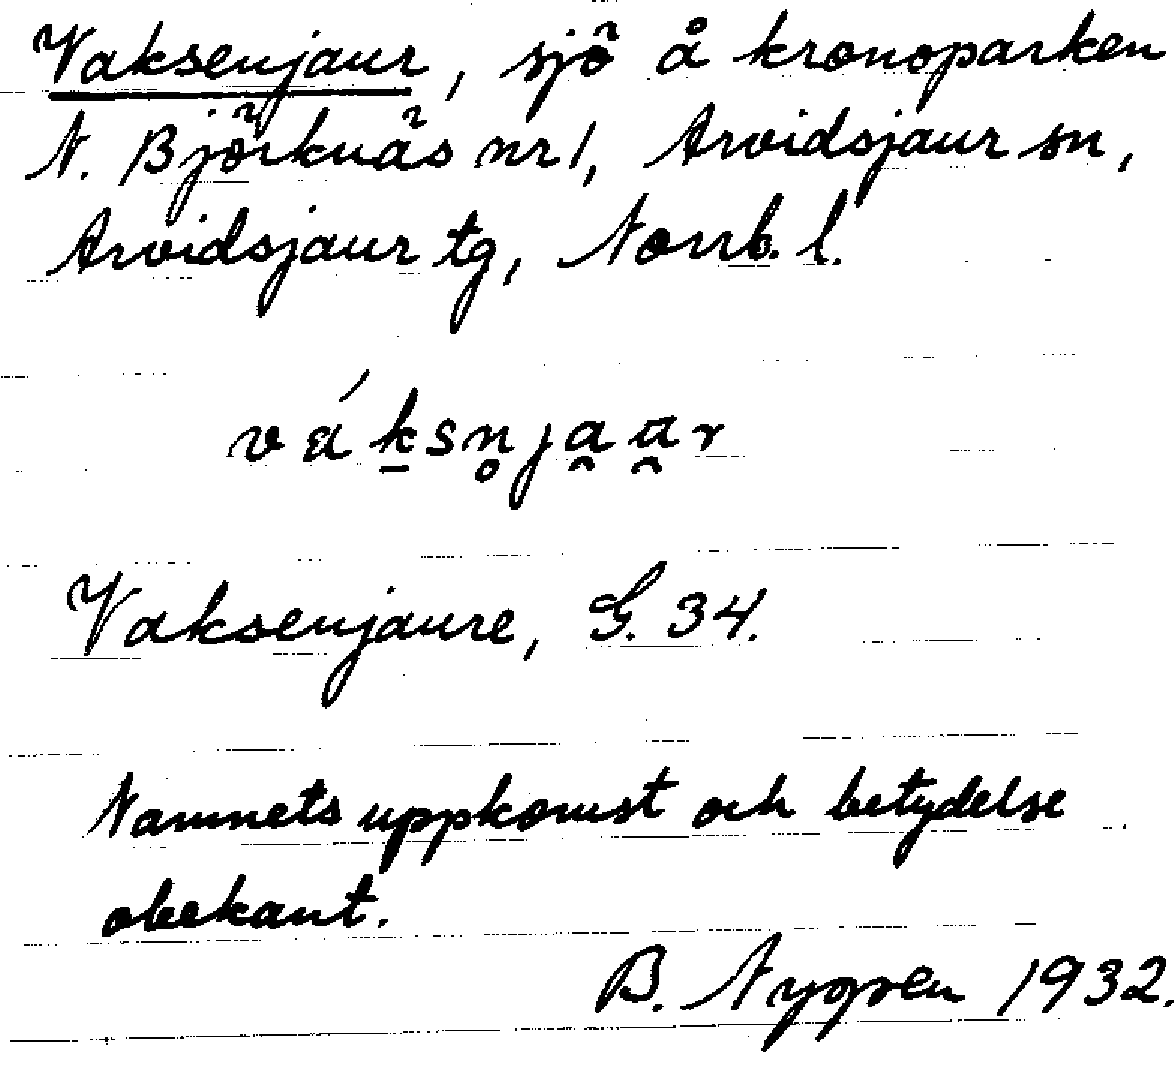 Vaksenjaur, sjö å kronoparken
N. Björknäs nr 1, Arvidsjaur sn,
Arvidsjaur tg, Norrb. l.
vák̲sn̥ja̯a̯r
Vaksenjaure, G. 34.
Namnets uppkomst och betydelse
obekant.
B. Nygren 1932.